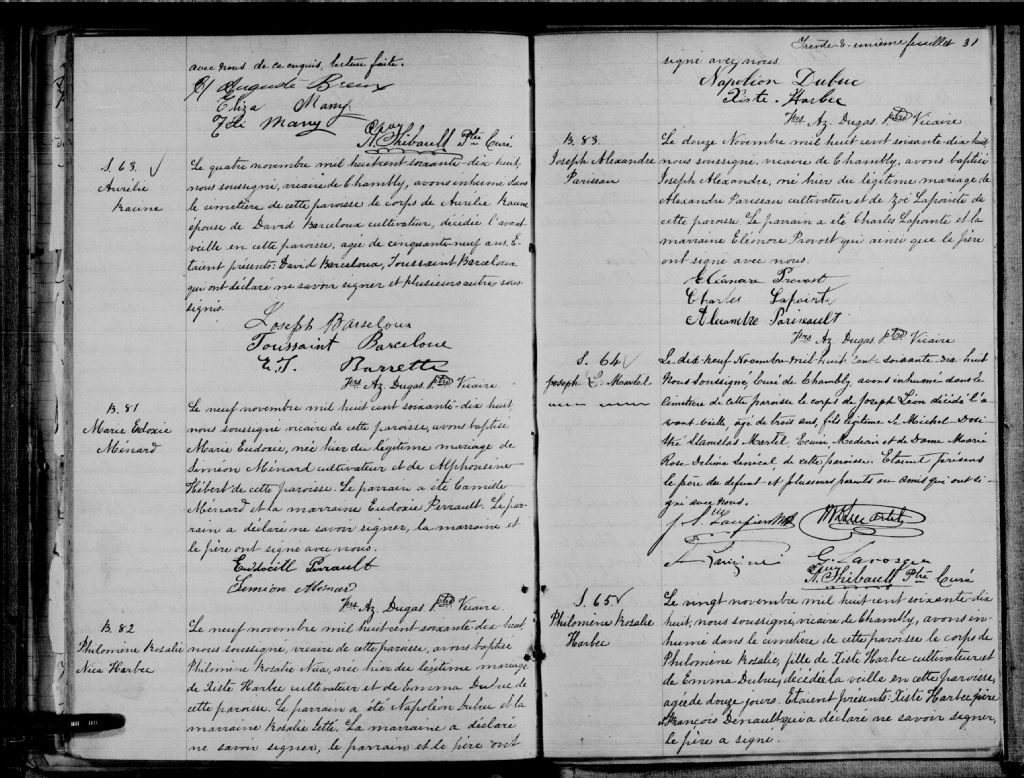 avec nous de ce enquis, lecture faite.
Auguste Breux
Eliza Many
Zoé Many
N. Thibault Ptre Curé
S. 63.
Aurélie
Racine
Le quatre novembre mil huit cent soixante-dix huit,
nous soussigné, vicaire de Chambly, avons inhumé dans
le cimetière de cette paroisse le corps de Aurélie Racine
épouse de David Barceloux cultivateur, décédée l'avant
veille en cette paroisse, agée de cinquante neuf ans. E-
taient présents: David Barceloux, Toussaint Barceloux
qui ont déclaré ne savoir signer et plusieurs autres sous-
signés.
Joseph Barseloux
Toussaint Barceloue
E. T. Barrette
Frs Az. Dugas Ptre Vicaire
B. 81
Marie Eudoxie
Ménard
Le neuf novembre mil huit cent soixante-dix huit,
nous soussigné vicaire de cette paroisse, avons baptisé
Marie Eudoxie, née hier du légitime mariage de
Siméon Ménard cultivateur et de Alphonsine
Hébert de cette paroisse. Le parrain a été Camille
Ménard et la marraine Eudoxie Perrault. Le par-
rain a déclaré ne savoir signer, la marraine et
le père ont signé avec nous.
Perrault
Siméon Ménard
Frs Az. Dugas Ptre Vicaire
B. 82
Philomène Rosalie
Nica Harbec
Le neuf novembre mil huit cent soixante-dix huit
nous soussigné, vicaire de cette paroisse, avons baptisé
Philomène Rosalie Nica, née hier du légitime mariage
de Xiste Harbec cultivateur et de Emma Dubuc de
cette paroisse. Le parrain a été Napoléon Dubuc et la
marraine Rosalie Letté. La marraine a déclaré
ne savoir signer, le parrain et le père ont
Trente & unième feuillet 31
signé avec nous.
Napoléon Dubuc
Xiste Harbec
Frs Az. Dugas Ptre Vicaire
B. 83.
Joseph Alexandre
Pariseau
Le douze Novembre mil huit cent soixante-dix huit
nous soussigné, vicaire de Chambly, avons baptisé
Joseph Alexandre, né hier du légitime mariage de
Alexandre Pariseau cultivateur et de Zoé Lapointe de
cette paroisse. Le parrain a été Charles Lapointe et la
marraine Eléonore Provost qui ainsi que le père
ont signé avec nous.
Eléonore Provost
Charles Lapointe
Alexandre Pariseault
Frs Az. Dugas Ptre Vicaire
S. 64
Joseph L. Martel
Le dix neuf Novembre mil huit cent soixante dix huit
Nous Soussigné, Curé de Chambly, avons inhumé dans le
Cimetière de cette paroisse le corps de Joseph Léon décédé l'a-
vant veille, agé de trois ans, fils légitime de Michel Dosi-
thé Stanislas Martel Ecuier Medecin et de Dame Marie
Rose Delima Senécal, de cette paroisse. Etaient présens
le père du défunt et plusieurs parents ou amis qui ont si-
gné avec nous.
N. Thibault Ptre Curé
S. 65
Philomène Rosalie
Harbec
Le vingt novembre mil huit cent soixante-dix
huit, nous soussigné, vicaire de Chambly, avons in-
humé dans le cimetière de cette paroisse le corps de
Philomène Rosalie, fille de Xiste Harbec cultivateur et
de Emma Dubuc, décédée la veille en cette paroisse,
agée de douze jours. Etaient présents: Xiste Harbec père
et François Denault qui a déclaré ne savoir signer,
le père a signé.